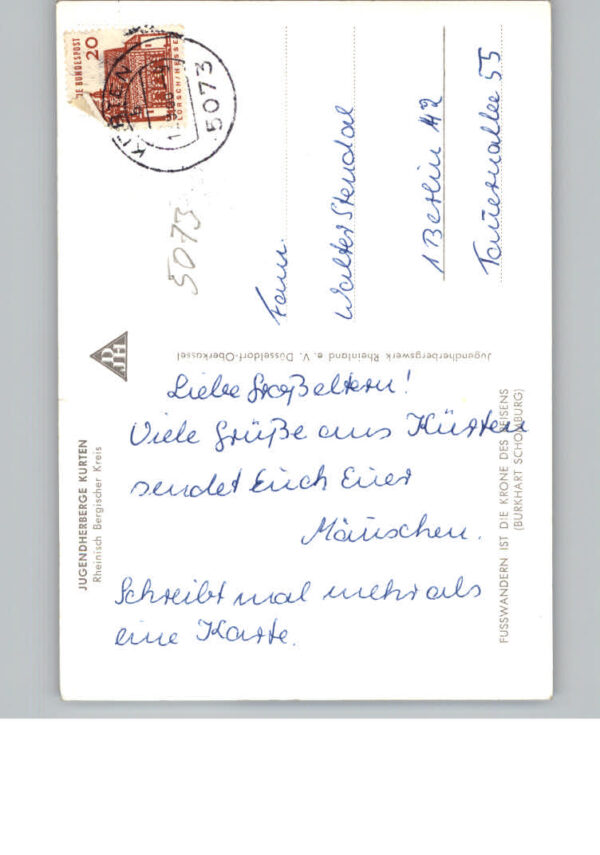 DEUTSCHE BUNDESPOST
20
LORSCH/HESSEN
KÜRTEN
5073
5073
Fam.
Walter Stendal
1 Berlin 42
Tauernallee 55
Jugendherbergswerk Rheinland e. V. Düsseldorf-Oberkassel
DJH
JUGENDHERBERGE KÜRTEN
Rheinisch Bergischer Kreis
Liebe Großeltern!
Viele Grüße aus Kürten
sendet Euch Euer
Mäuschen.
Schreibt mal mehr als
eine Karte.
FUSSWANDERN IST DIE KRONE DES REISENS
(BURKHART SCHOMBURG)